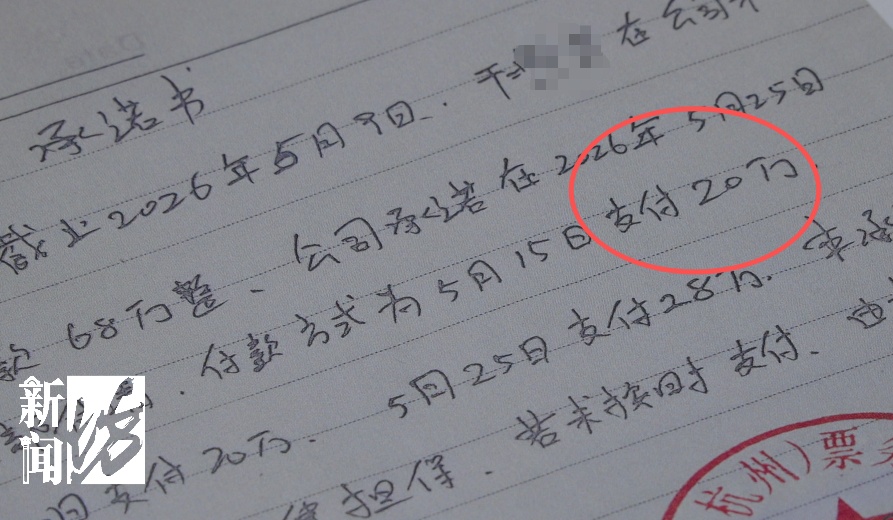 承诺书
截止2026年5月9日. 于 在公司
款68万整、公司承诺在2026年5月25日
付款方式为5月15日支付20万.
日支付20万. 5月25日支付28万.
担保. 若未按时支付. 由
杭州）票务
新闻坊